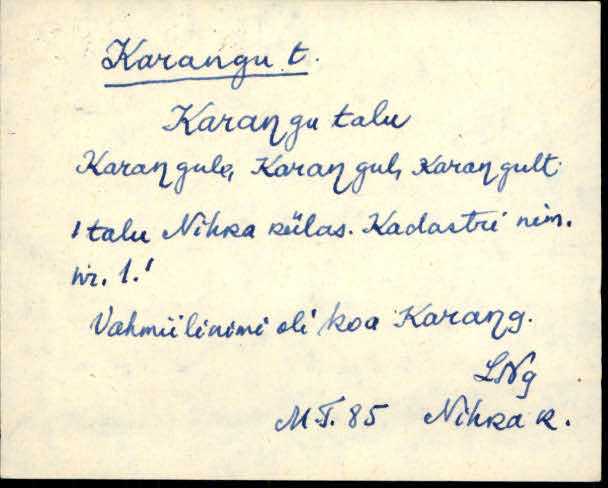 Karangu t.
Karaŋgu talu
Karaŋgule, Karaŋgul, Karaŋgult
'talu Nihka külas. Kadastri nim.
nr. 1.'
Vahmiilinimi oli koa Karaŋg.
LNg
M.T. 85 Nihka k.